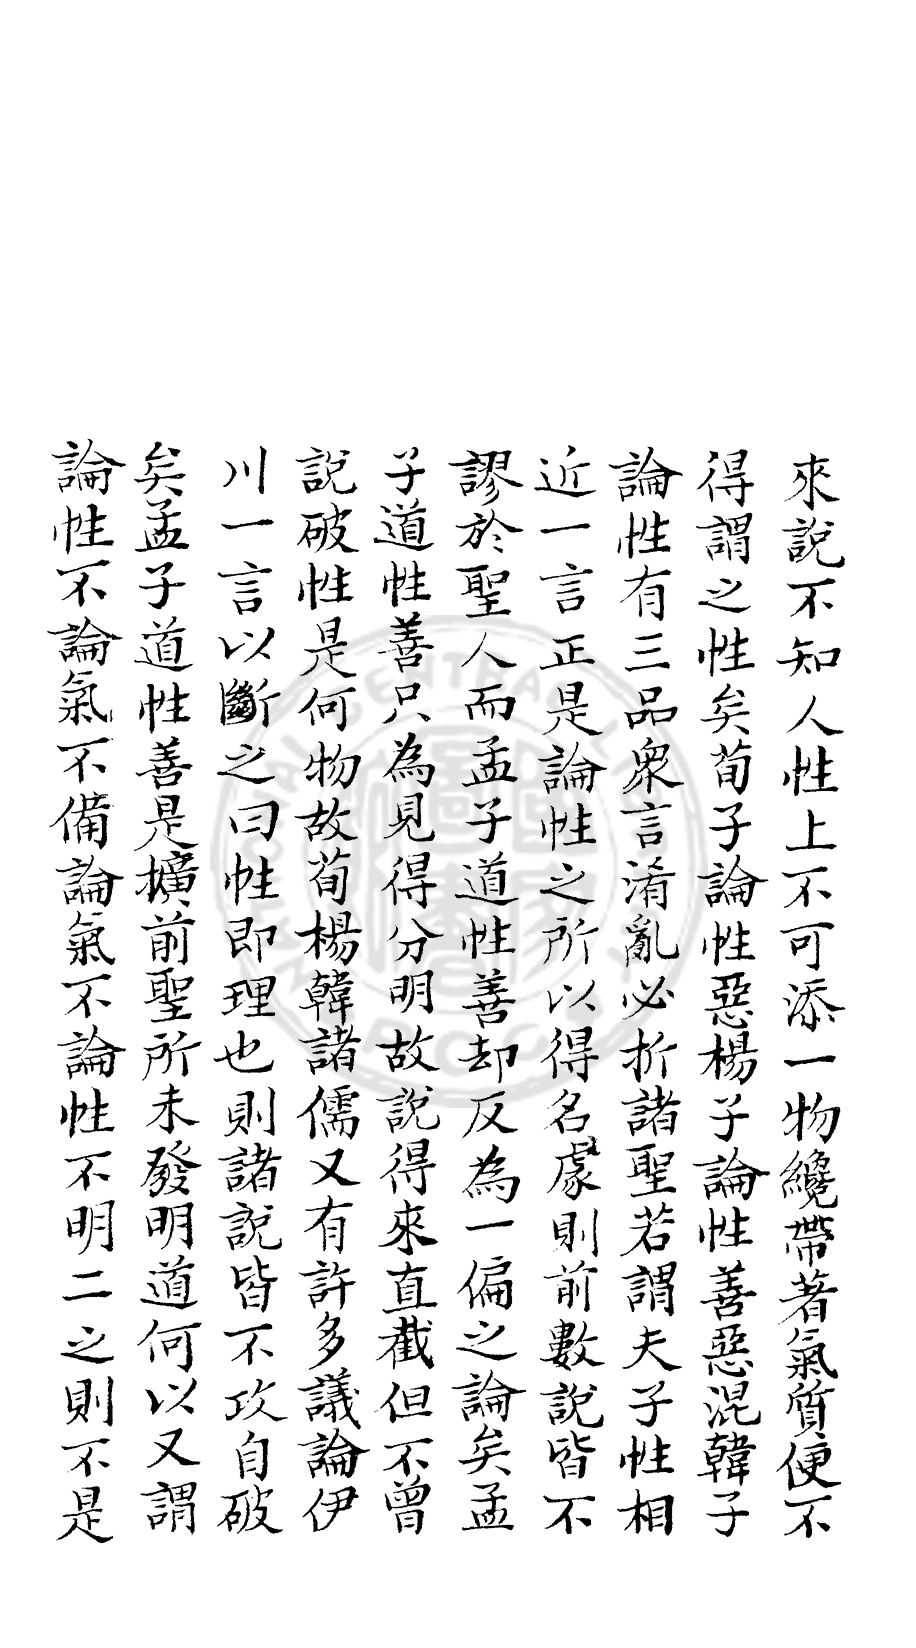 來說不知人性上不可添一物纔帶著氣質便不
得謂之性矣荀子論性惡楊子論性善惡混韓子
論性有三品衆言淆亂必折諸聖若謂夫子性相
近一言正是論性之所以得名處則前數說皆不
謬於聖人而孟子道性善却反為一偏之論矣孟
子道性善只為見得分明故說得來直截但不曾
說破性是何物故荀楊韓諸儒又有許多議論伊
川一言以斷之曰性即理也則諸說皆不攻自破
矣孟子道性善是擴前聖所未發明道何以又謂
論性不論氣不備論氣不論性不明二之則不是